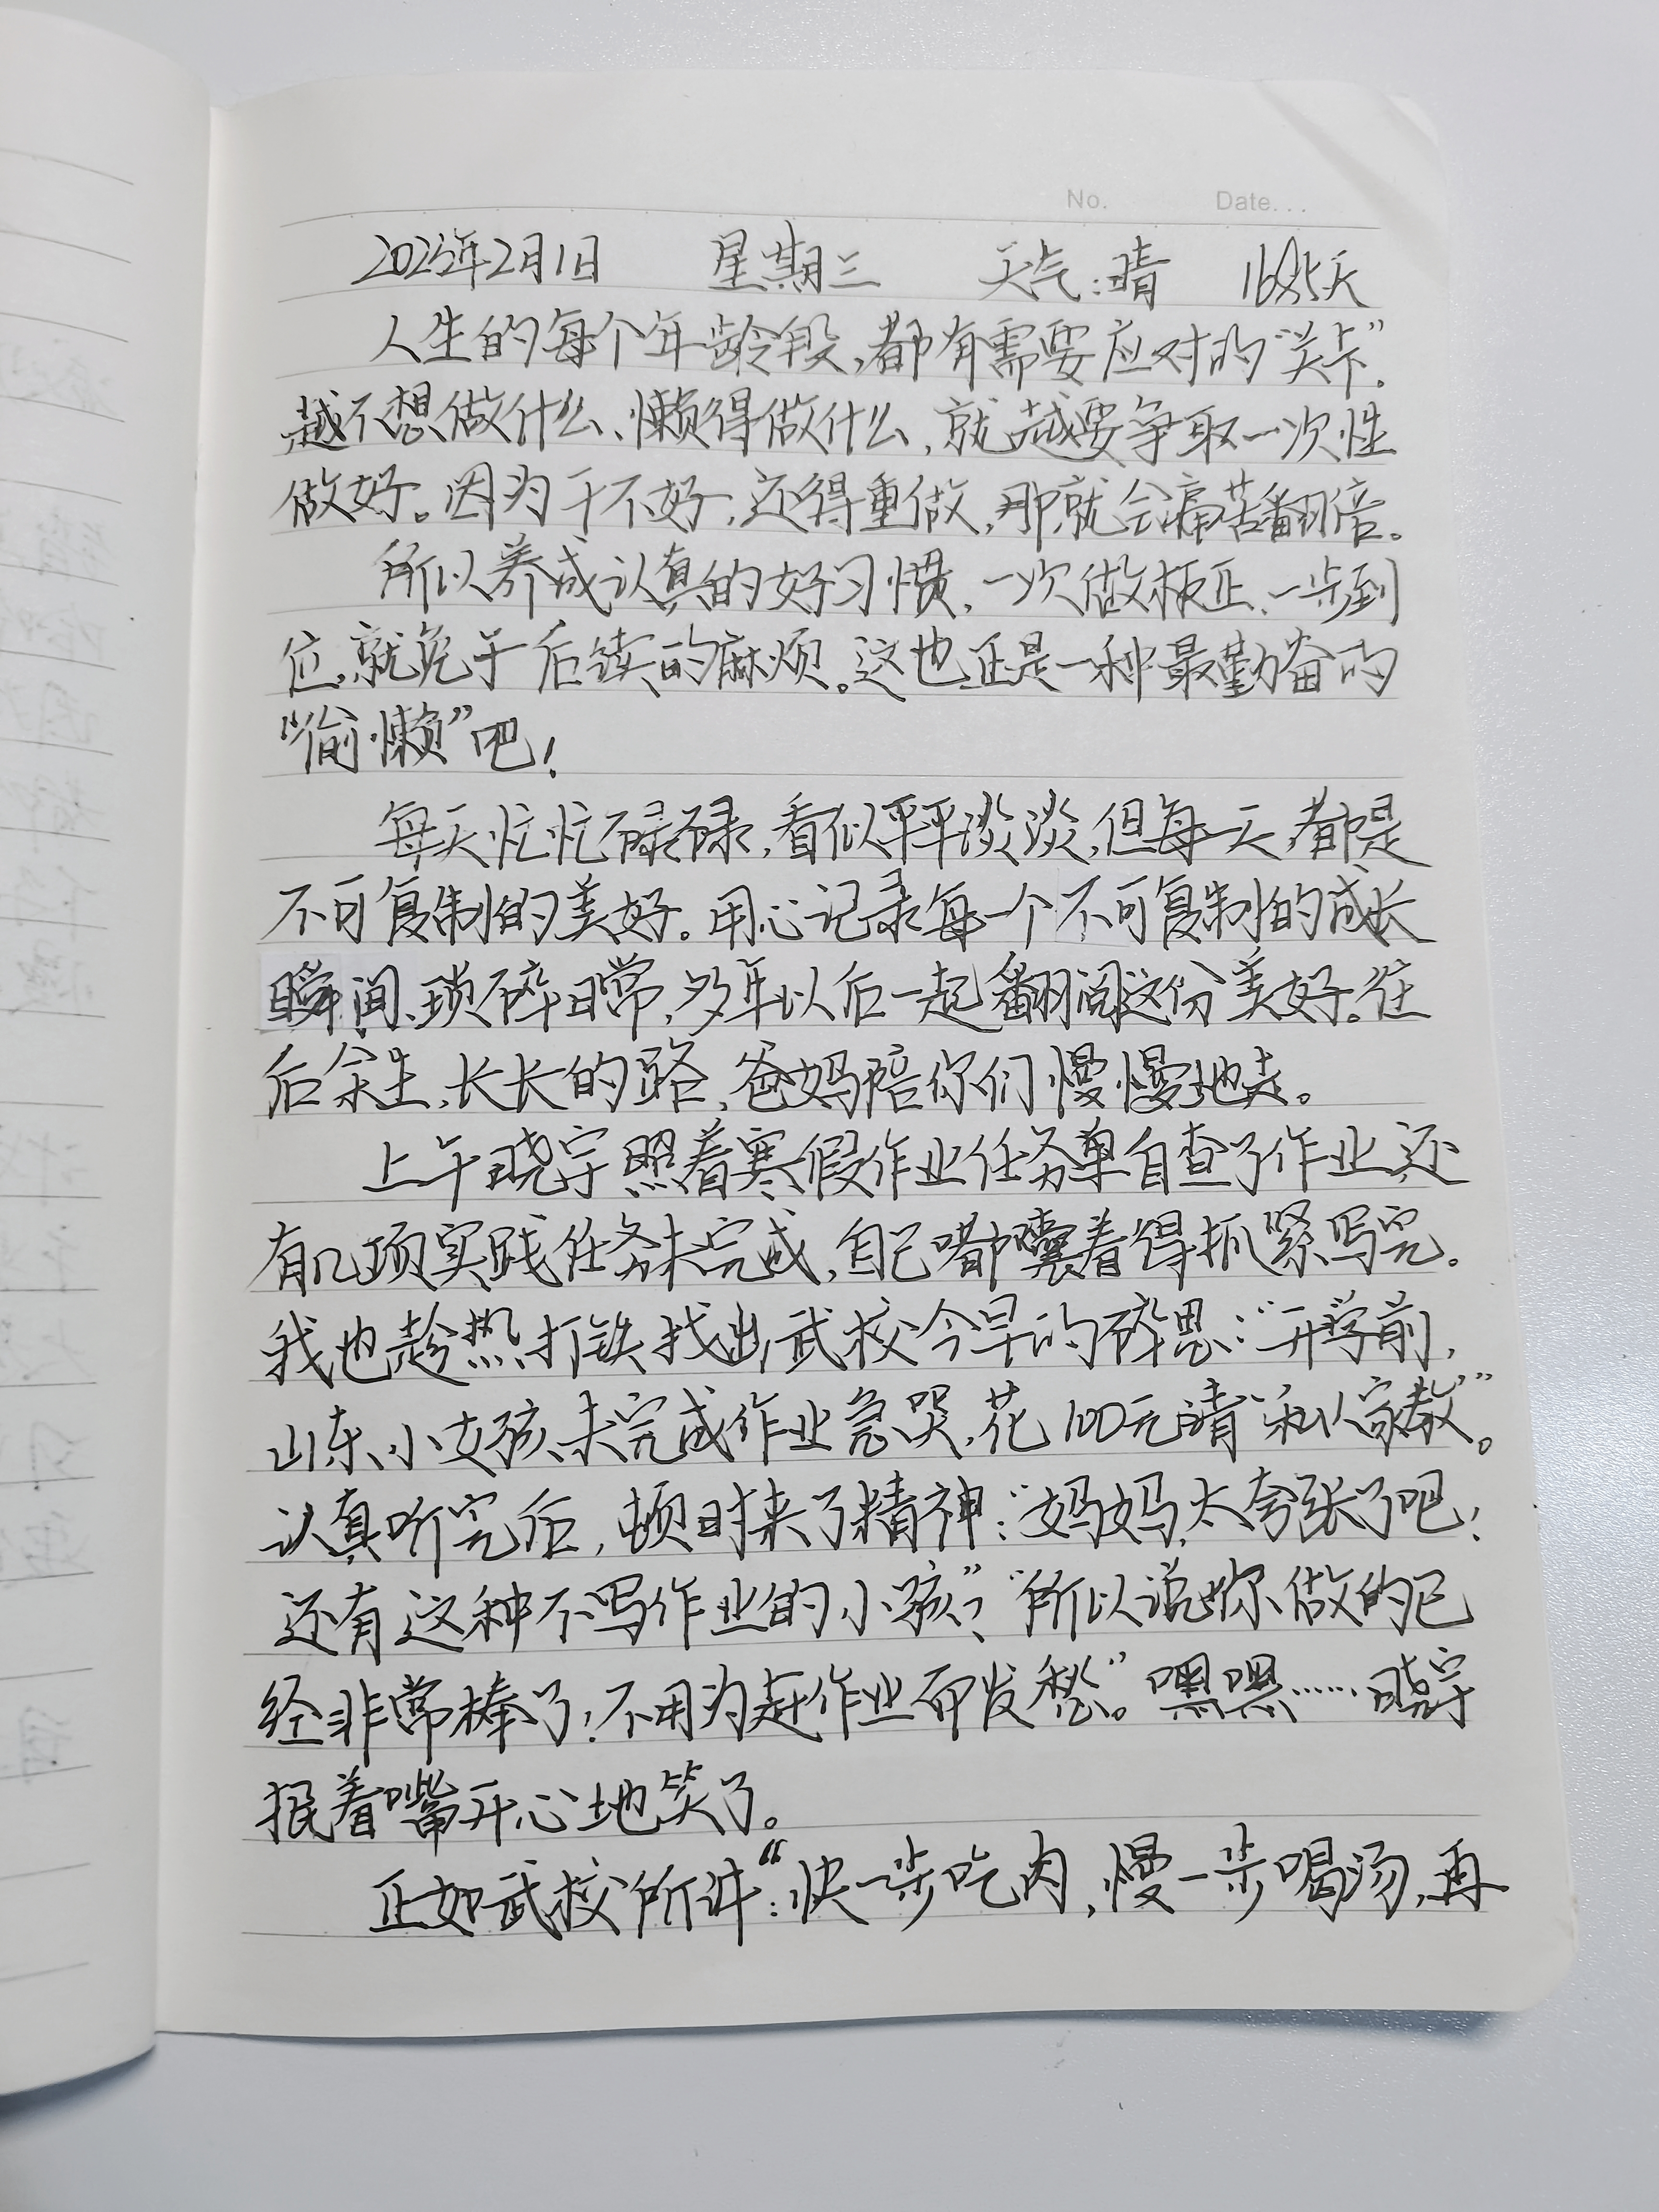 No. Date...
2023年2月1日 星期三 天气:晴 天
人生的每个年龄段,都有需要应对的“关卡”.
越不想做什么、懒得做什么,就越要争取一次性
做好。因为干不好,还得重做,那就会痛苦翻倍。
所以养成认真的好习惯,一次做板正、一步到
位,就免于后续的麻烦。这也正是一种最勤奋的
“偷懒”吧!
每天忙忙碌碌,看似平平淡淡,但每一天都是
不可复制的美好。用心记录每一个不可复制的成长
瞬间、琐碎日常,多年以后一起翻阅这份美好。往
后余生,长长的路,爸妈陪你们慢慢地走。
上午晓宇照着寒假作业任务单自查了作业,还
有几项实践任务未完成,自己嘟囔着得抓紧写完。
我也趁热打铁找出武校今早的碎思:“开学前,
山东小女孩未完成作业急哭,花100元请“私人家教”。
认真听完后,顿时来了精神:“妈妈,太夸张了吧!
还有这种不写作业的小孩”?“所以说你做的已
经非常棒了!不用为赶作业而发愁”。嘿嘿……晓宇
抿着嘴开心地笑了。
正如武校所讲:“快一步吃肉,慢一步喝汤,再